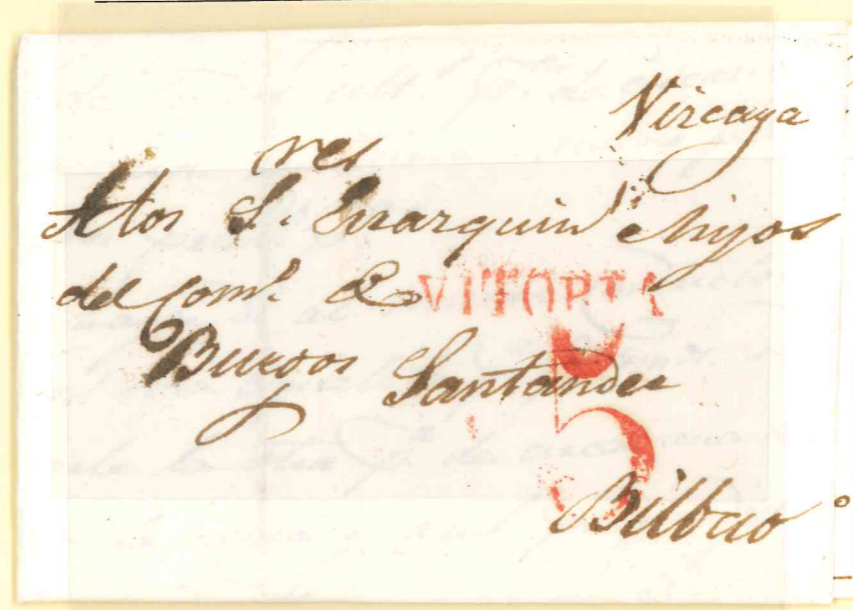 Vizcaya
A los S.res Ynarquin é hijos
del Com.º D
VITORIA
Burgos Santander
5
Bilbao